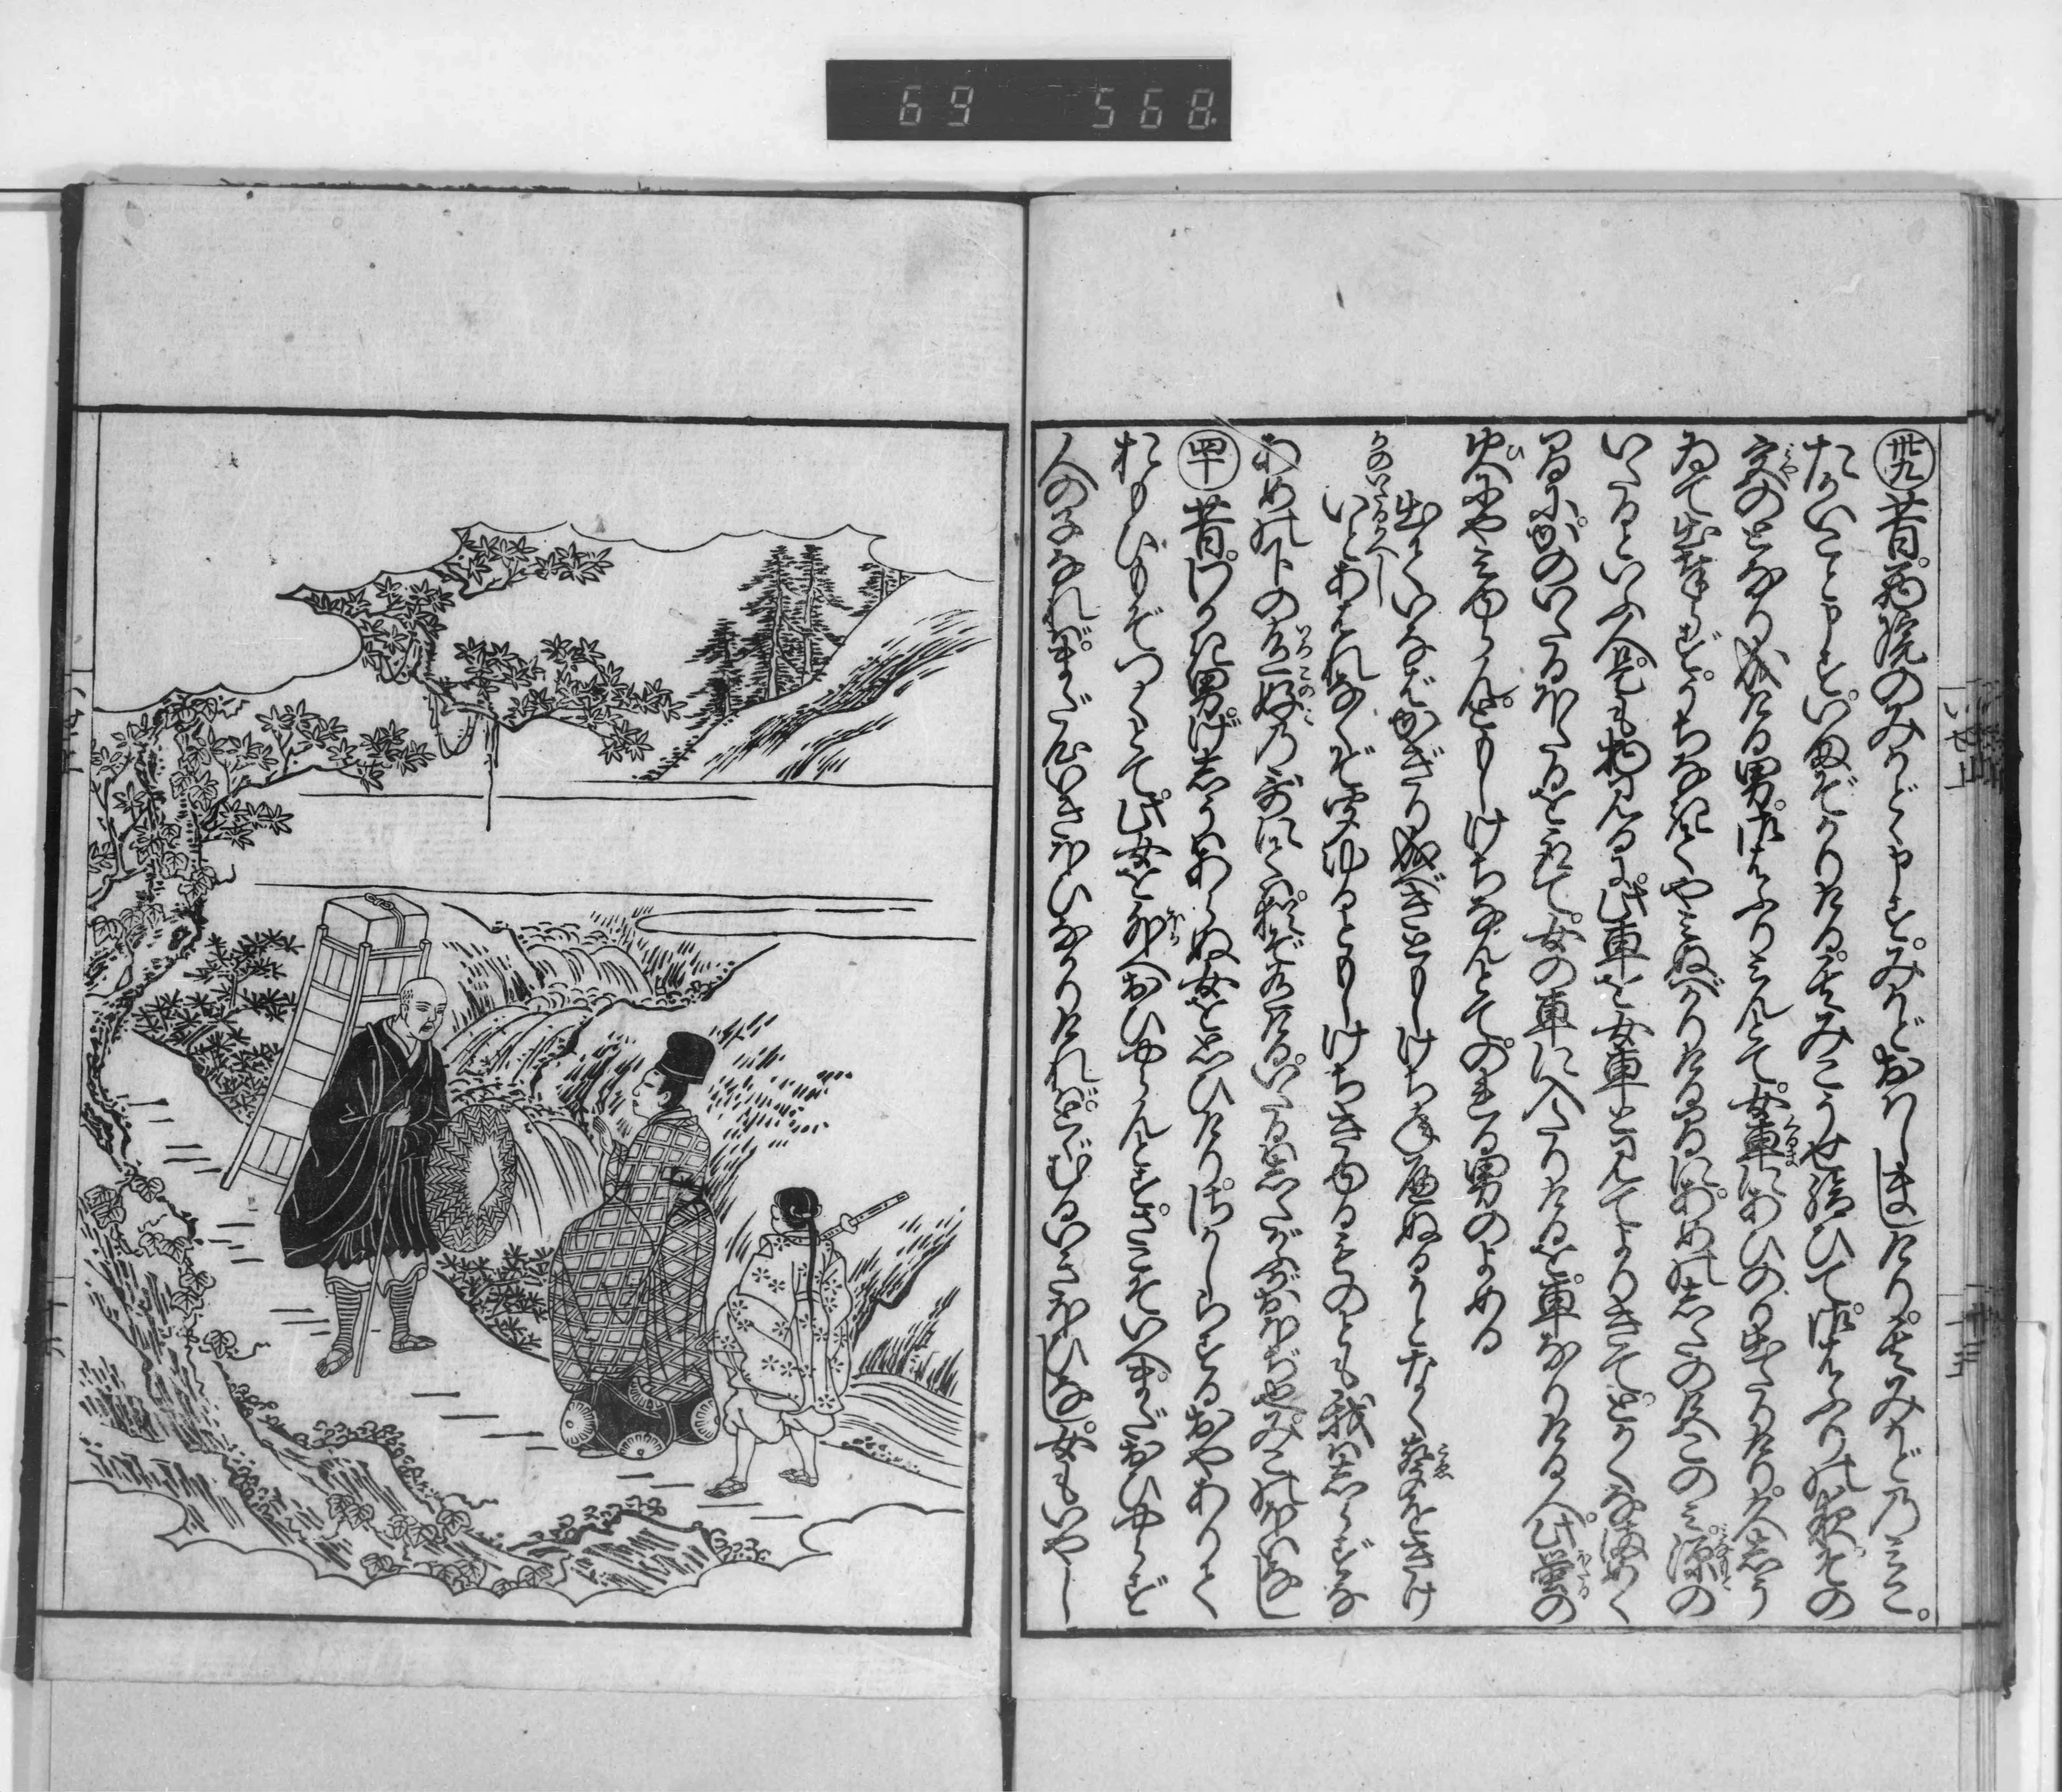 69 568
卅九 昔。西院のみかどと申す。みかどおはしましたり。其みかどのみこ。
たかいこと申す。いまそかりたる。其みこうせ給ひて。御はふりの夜。その
宮のとなり成ける男。御はふりみんとて。女車にあひのり出たりたり。久しう
ゐて出奉らず。うちなきてやみぬべかりたる間に。あめの志たの色このみ。源の
いたるといふ人。是も物みるに。此車を女車と見てよりきて。とかくなまめく
間に。かのいたるほたるをとりて。女の車に入たりたるを。車なりたる人。此螢の
ともす火にやみゆらん。ともしけちなんとて。のれる男のよめる
出ていなばかぎり成べきともしけち年へぬるかとなく聲をきけ
かのいたるかへし
いとあはれなくぞ聞ゆるともしけちきゆる物とも我はしらずな
あめの下の色好の哥にては。猶ぞ有ける。いたるは志たがふがおほぢ也。みこのほいなし
四十 昔。わかき男。けしうはあらぬ女を思ひたり。さかしらするおやありて
おもひもぞつくとて。此女を外へおひやらんとす。さこそいへ。まだおひやらず
人の子なれば。まだ心いきほひなかりたれば。とどむるいきほひなし。女もいやし
いせ上
十三